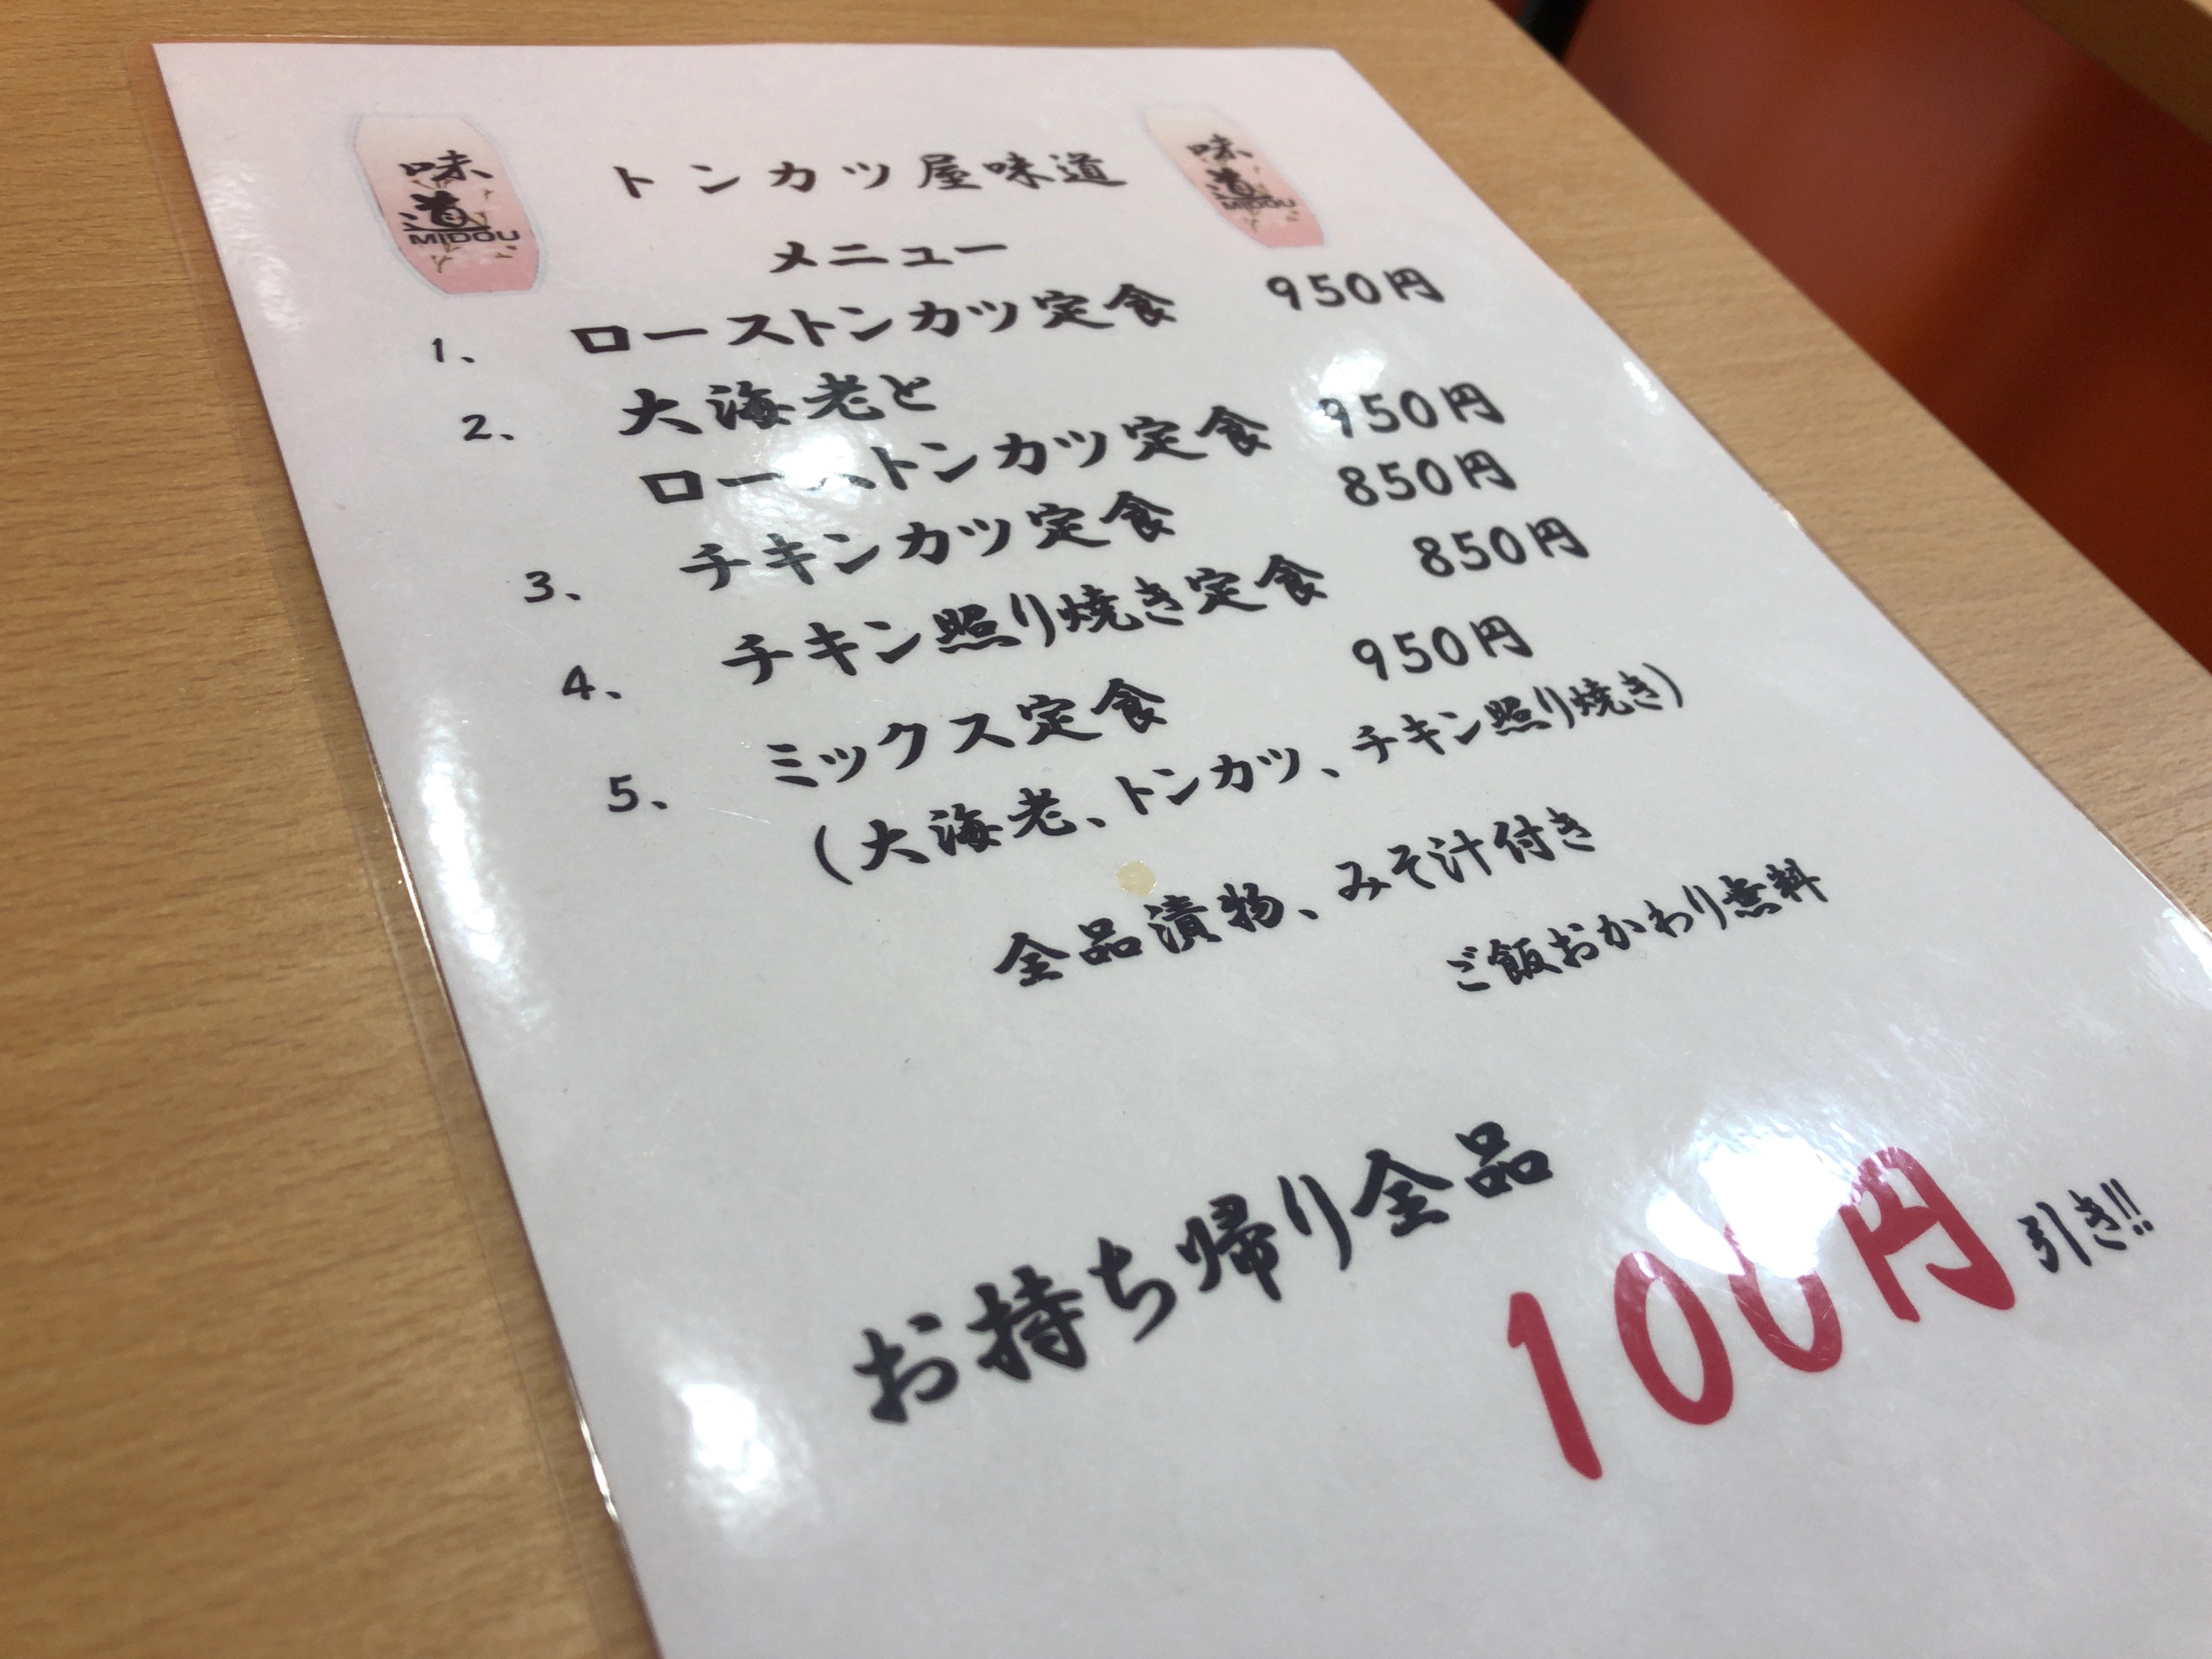 味
道
MIDOU
トンカツ屋味道
味
道
MIDOU
メニュー
1、 ローストンカツ定食 950円
2、 大海老と
ローストンカツ定食 950円
3、 チキンカツ定食 850円
4、 チキン照り焼き定食 850円
5、 ミックス定食 950円
(大海老、トンカツ、チキン照り焼き)
全品漬物、みそ汁付き
ご飯おかわり無料
お持ち帰り全品
100円引き!!